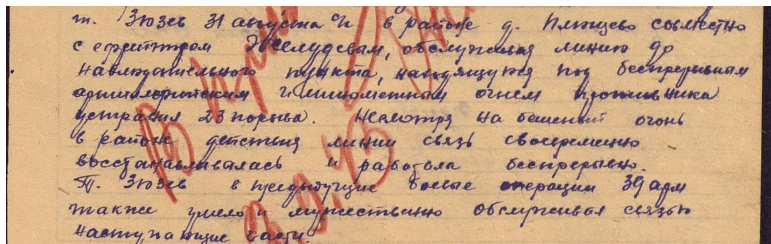 т. Зюзев 31 августа с/г в районе д. Плющево совместно
с ефрейтором Желудевым, обслуживая линию до
наблюдательного пункта, находящуюся под беспрерывным
артиллерийским и минометным огнем противника
устранил 23 порыва. Несмотря на бешеный огонь
в районе действия линии связь своевременно
восстанавливалась и работала беспрерывно.
Т. Зюзев в предыдущие боевые операции 39 арм
также умело и мужественно обслуживал связью
наступающие части.